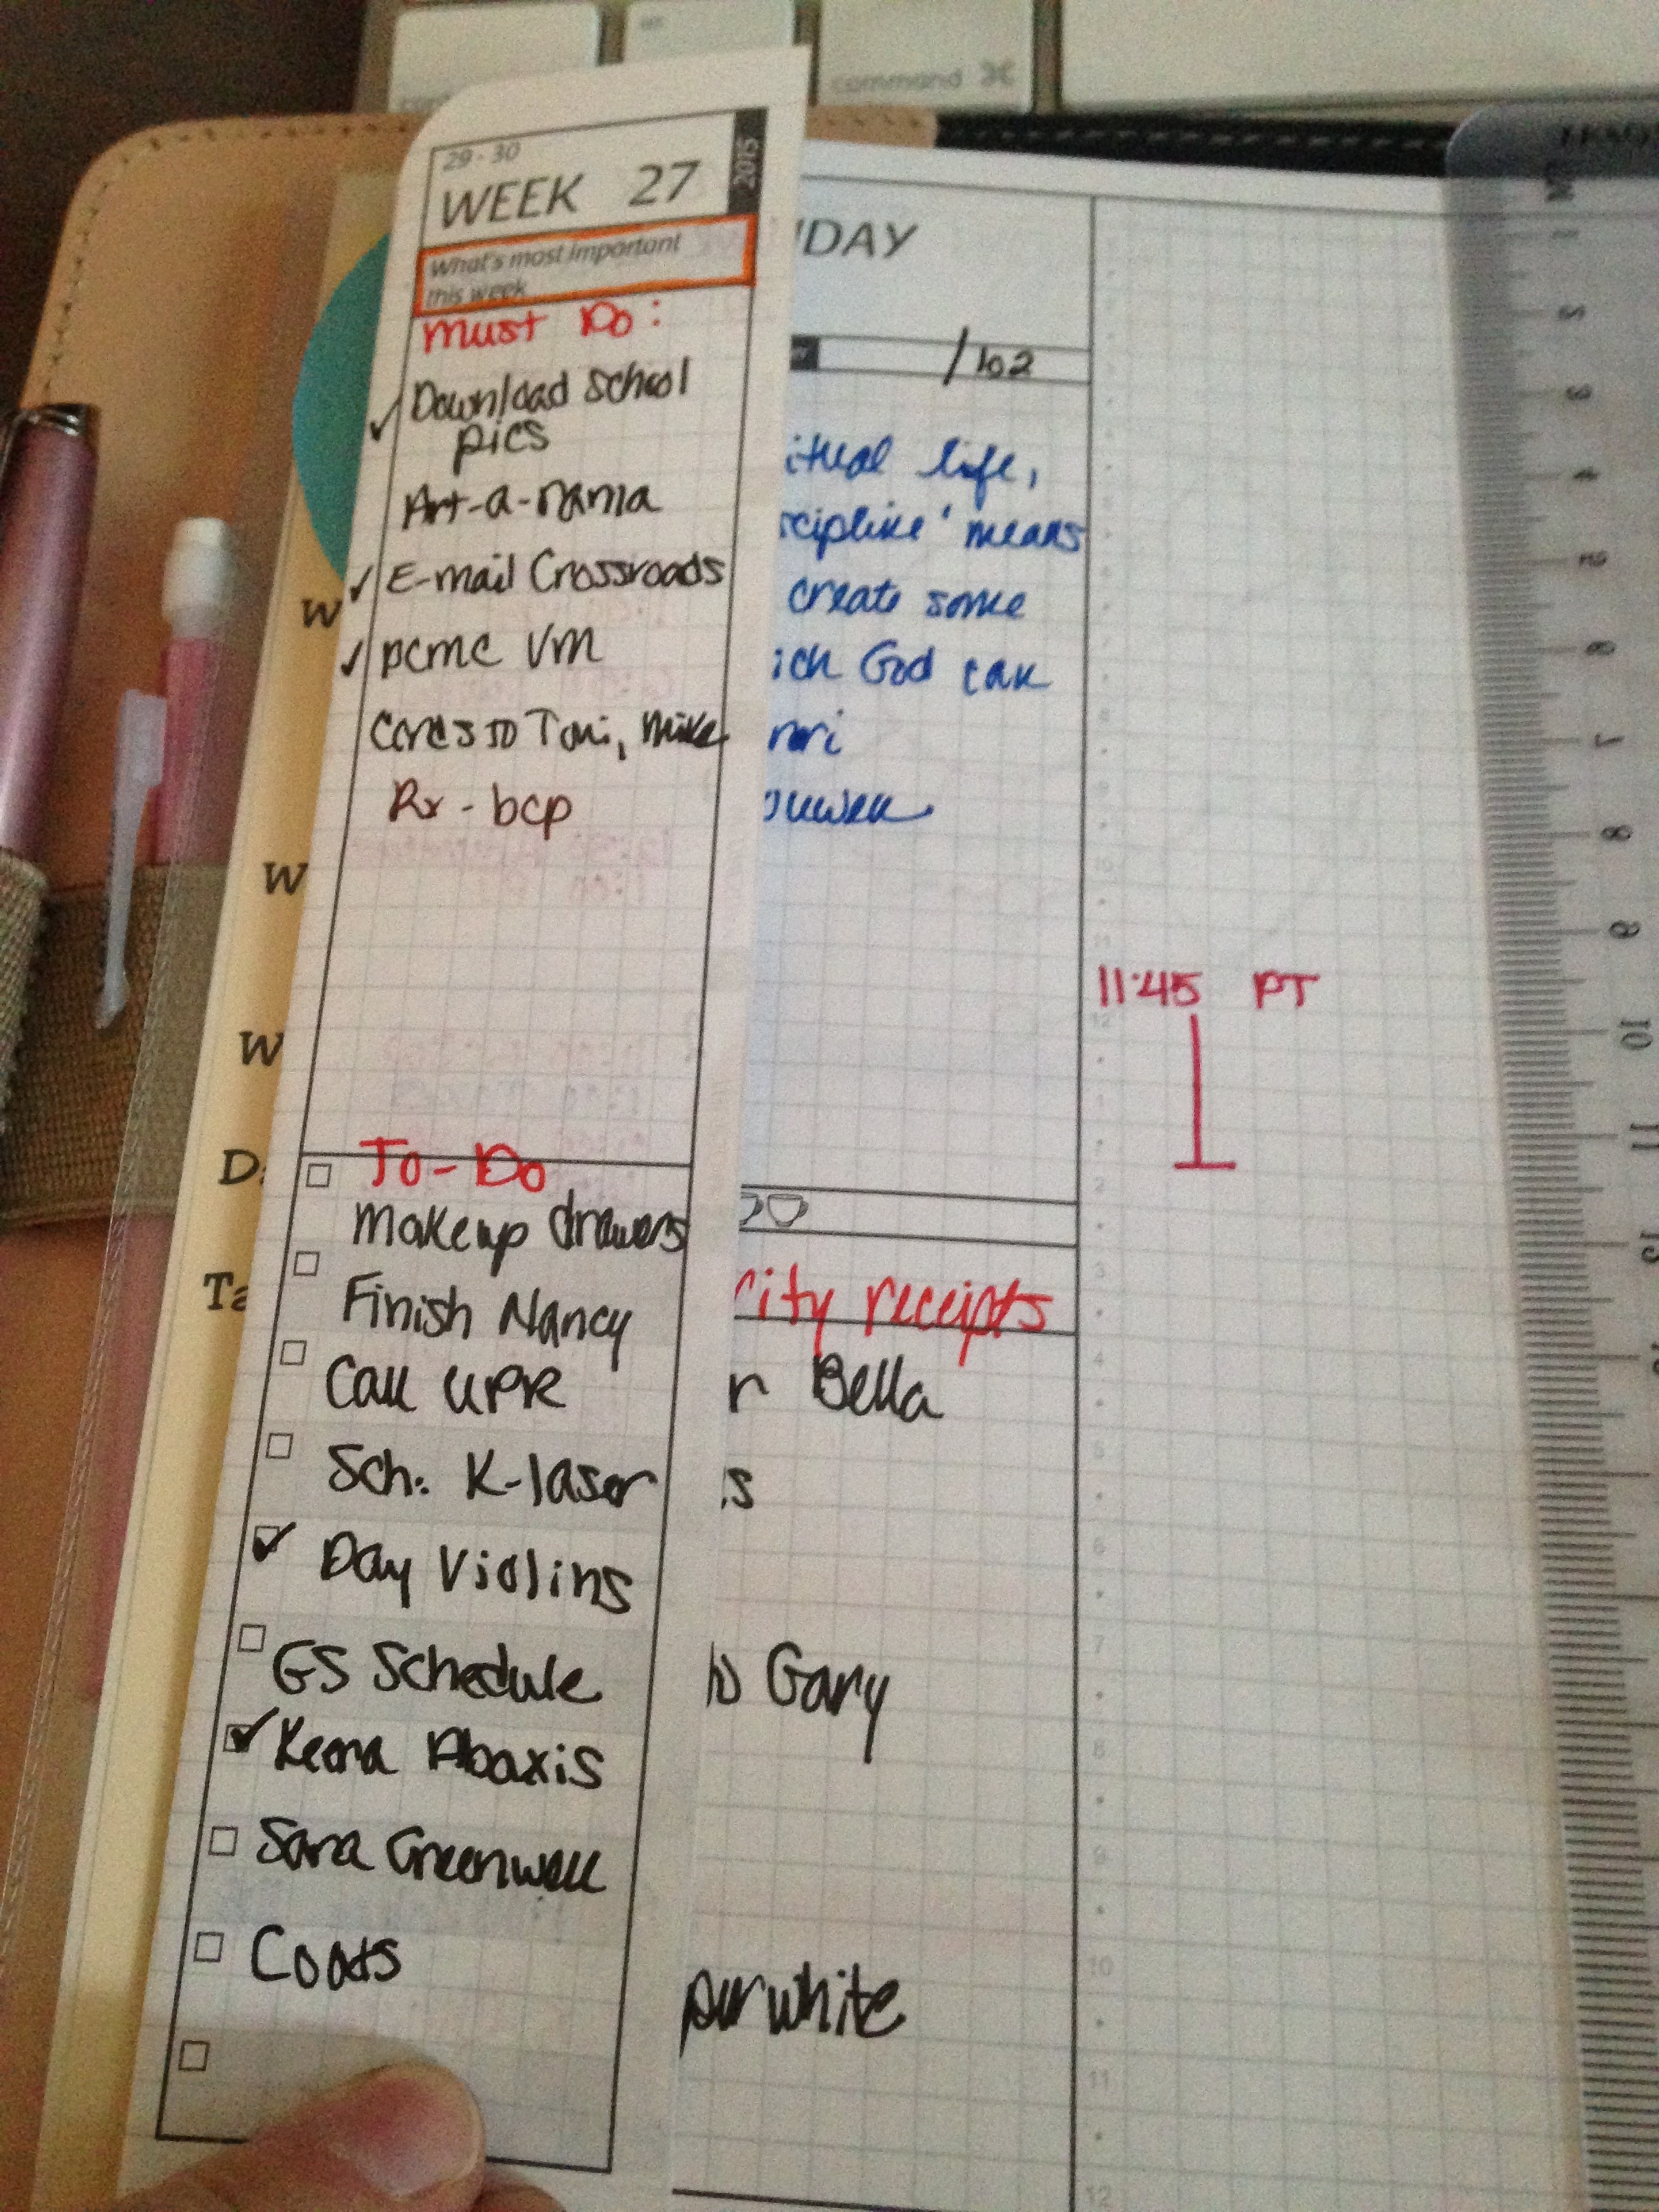 command ⌘
29-30
WEEK 27
2015
What's most important
this week
Must Do:
✓ Download School
pics
Art-a-mania
✓ E-mail Crossroads
✓ pcmc VM
Cards to Toni, Mike
Rx - bcp
To-Do
Makeup drawers
Finish Nancy
Call UPR
Sch: K-laser
✓ Day Violins
GS Schedule
✓ Keena Abaxis
Sara Greenwell
Coats
W
W
W
D
Ta
DAY
/102
itual life,
scipline' means
create some
ich God can
nri
ouwen
rity receipts
r Bella
s
to Gary
purwhite
11:45 PT
12
1
2
3
4
5
6
7
8
9
10
11
12
1
2
3
4
5
6
7
8
9
10
11
13